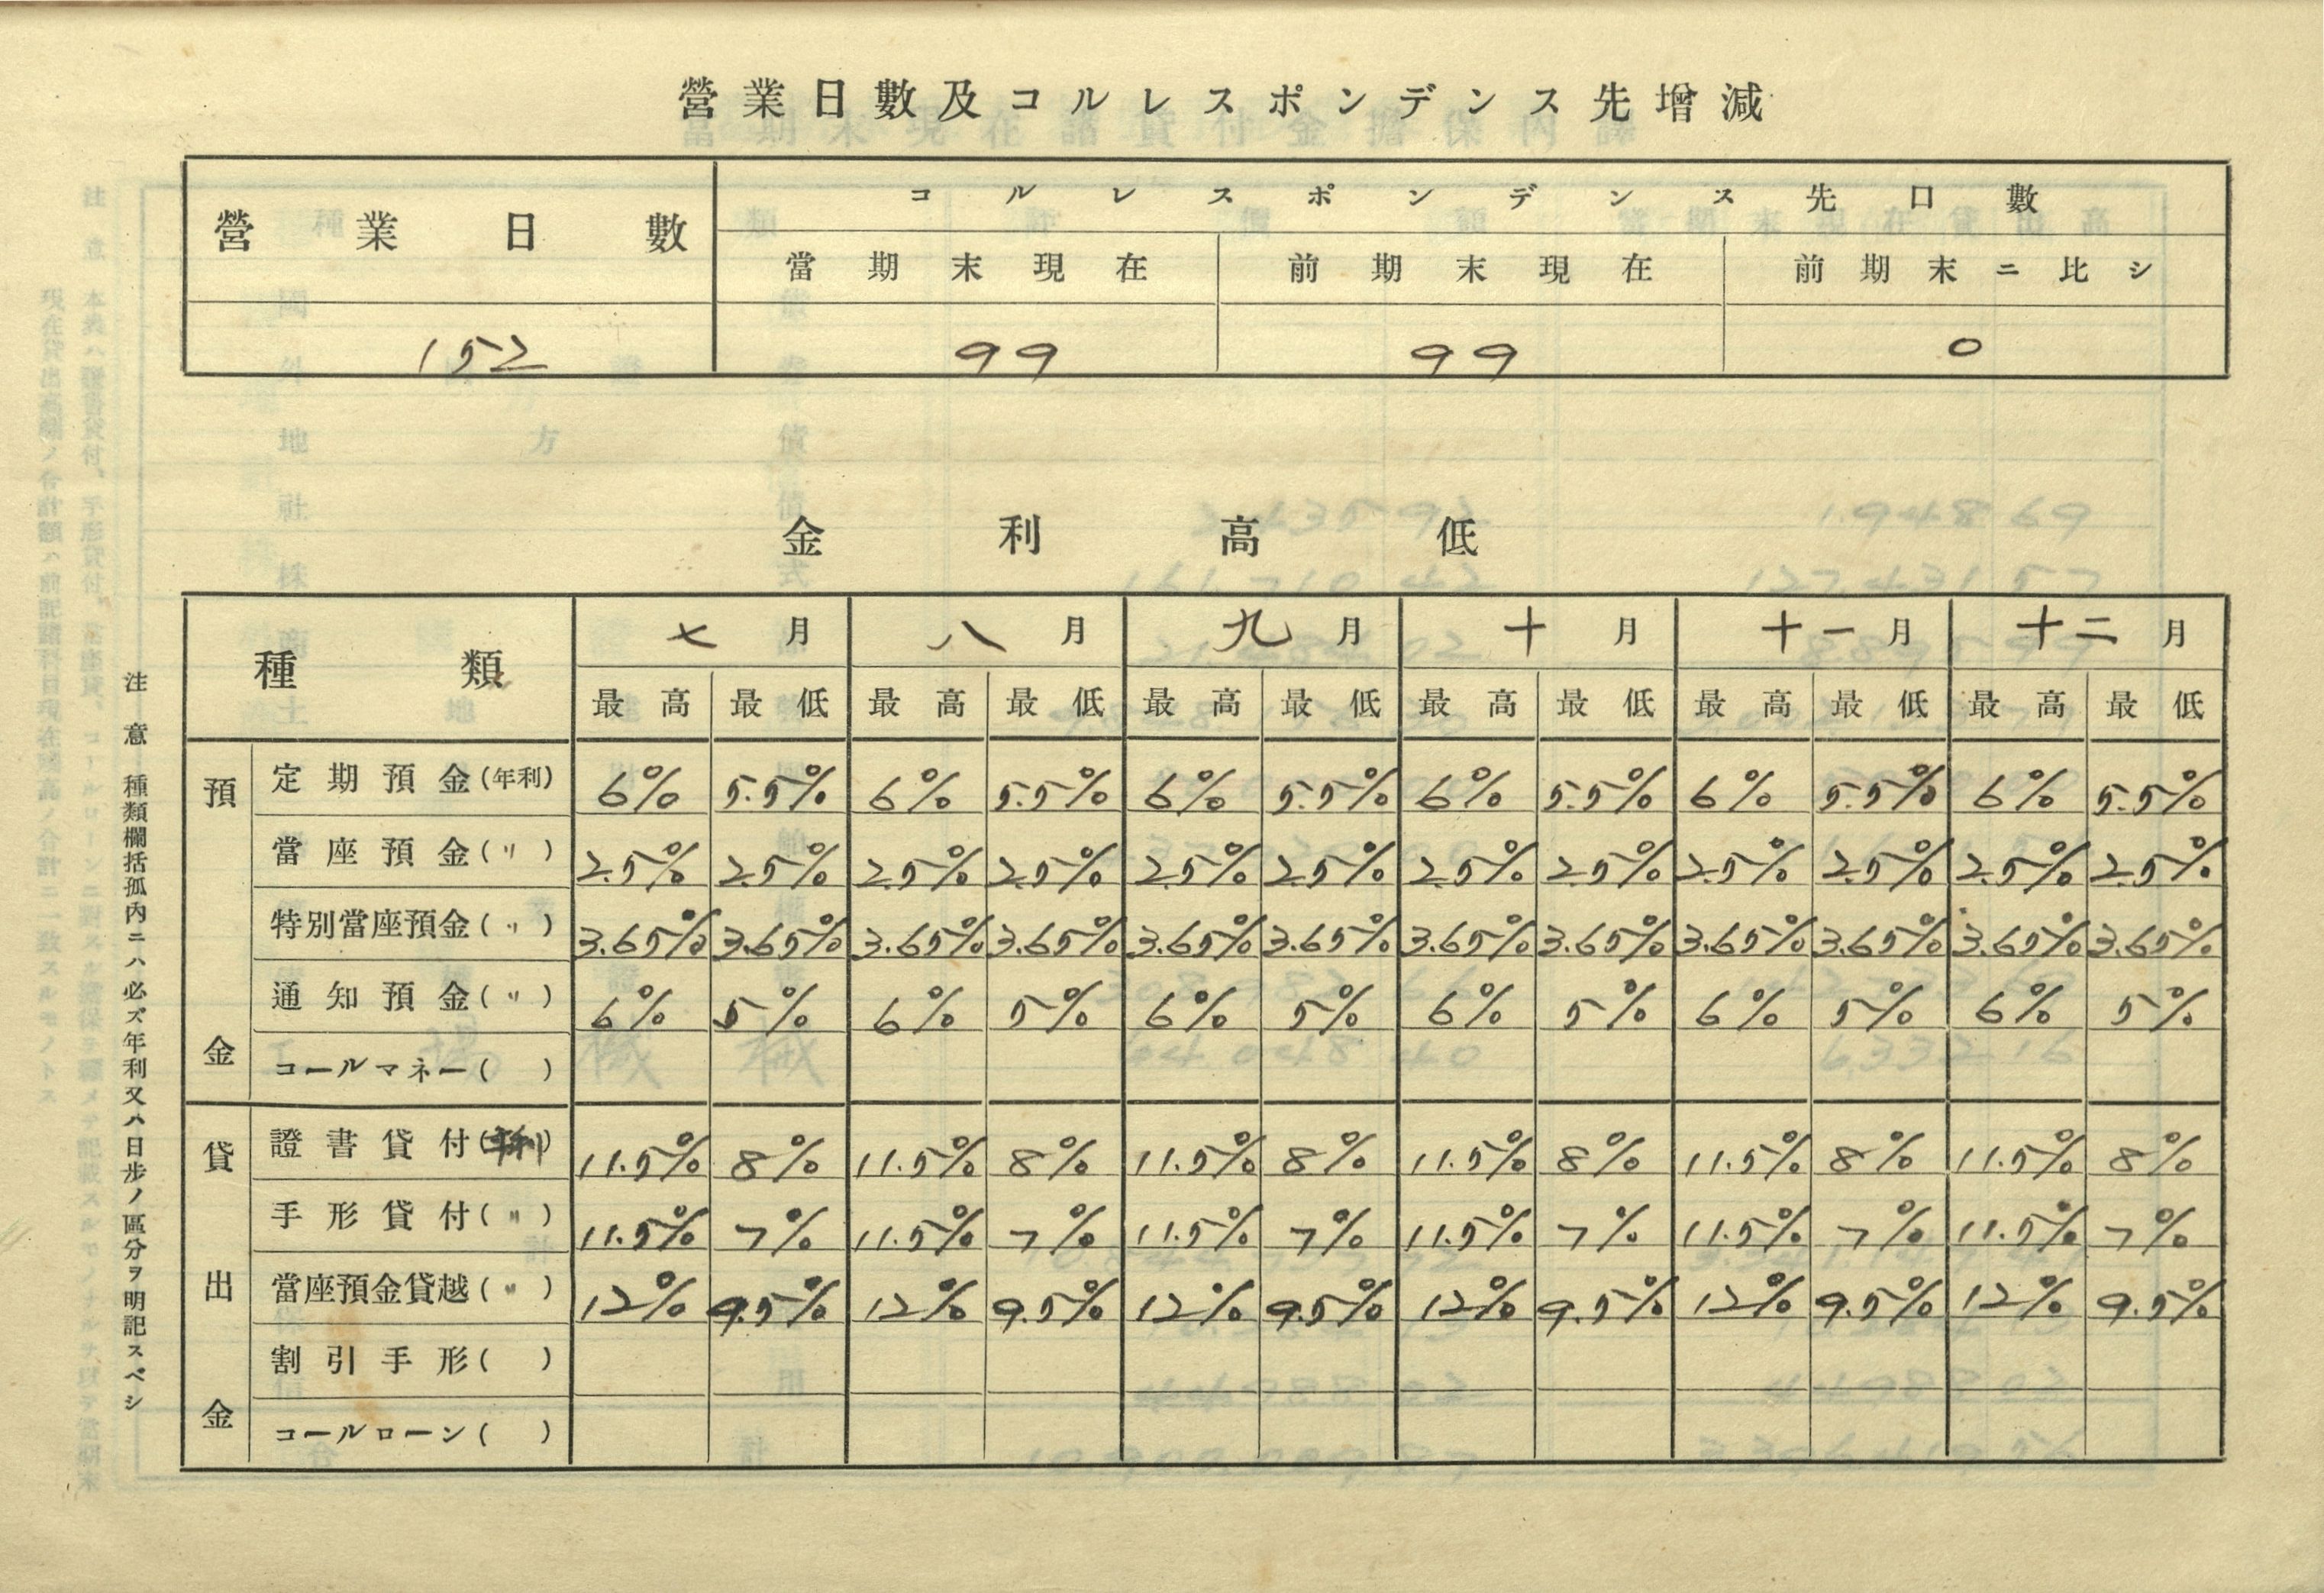 營業日數及コルレスポンデンス先增減
營業日數 コルレスポンデンス先口數
當期末現在 前期末現在 前期末ニ比シ
152 99 99 0
金利高低
種類 七月 八月 九月 十月 十一月 十二月
最高 最低 最高 最低 最高 最低 最高 最低 最高 最低 最高 最低
預金
定期預金(年利) 6% 5.5% 6% 5.5% 6% 5.5% 6% 5.5% 6% 5.5% 6% 5.5%
當座預金(〃) 2.5% 2.5% 2.5% 2.5% 2.5% 2.5% 2.5% 2.5% 2.5% 2.5% 2.5% 2.5%
特別當座預金(〃) 3.65% 3.65% 3.65% 3.65% 3.65% 3.65% 3.65% 3.65% 3.65% 3.65% 3.65% 3.65%
通知預金(〃) 6% 5% 6% 5% 6% 5% 6% 5% 6% 5% 6% 5%
コールマネー( )
貸出金
證書貸付(年利) 11.5% 8% 11.5% 8% 11.5% 8% 11.5% 8% 11.5% 8% 11.5% 8%
手形貸付(〃) 11.5% 7% 11.5% 7% 11.5% 7% 11.5% 7% 11.5% 7% 11.5% 7%
當座預金貸越(〃) 12% 9.5% 12% 9.5% 12% 9.5% 12% 9.5% 12% 9.5% 12% 9.5%
割引手形( )
コールローン( )
注意 種類欄括孤內ニハ必ズ年利又ハ日步ノ區分ヲ明記スベシ